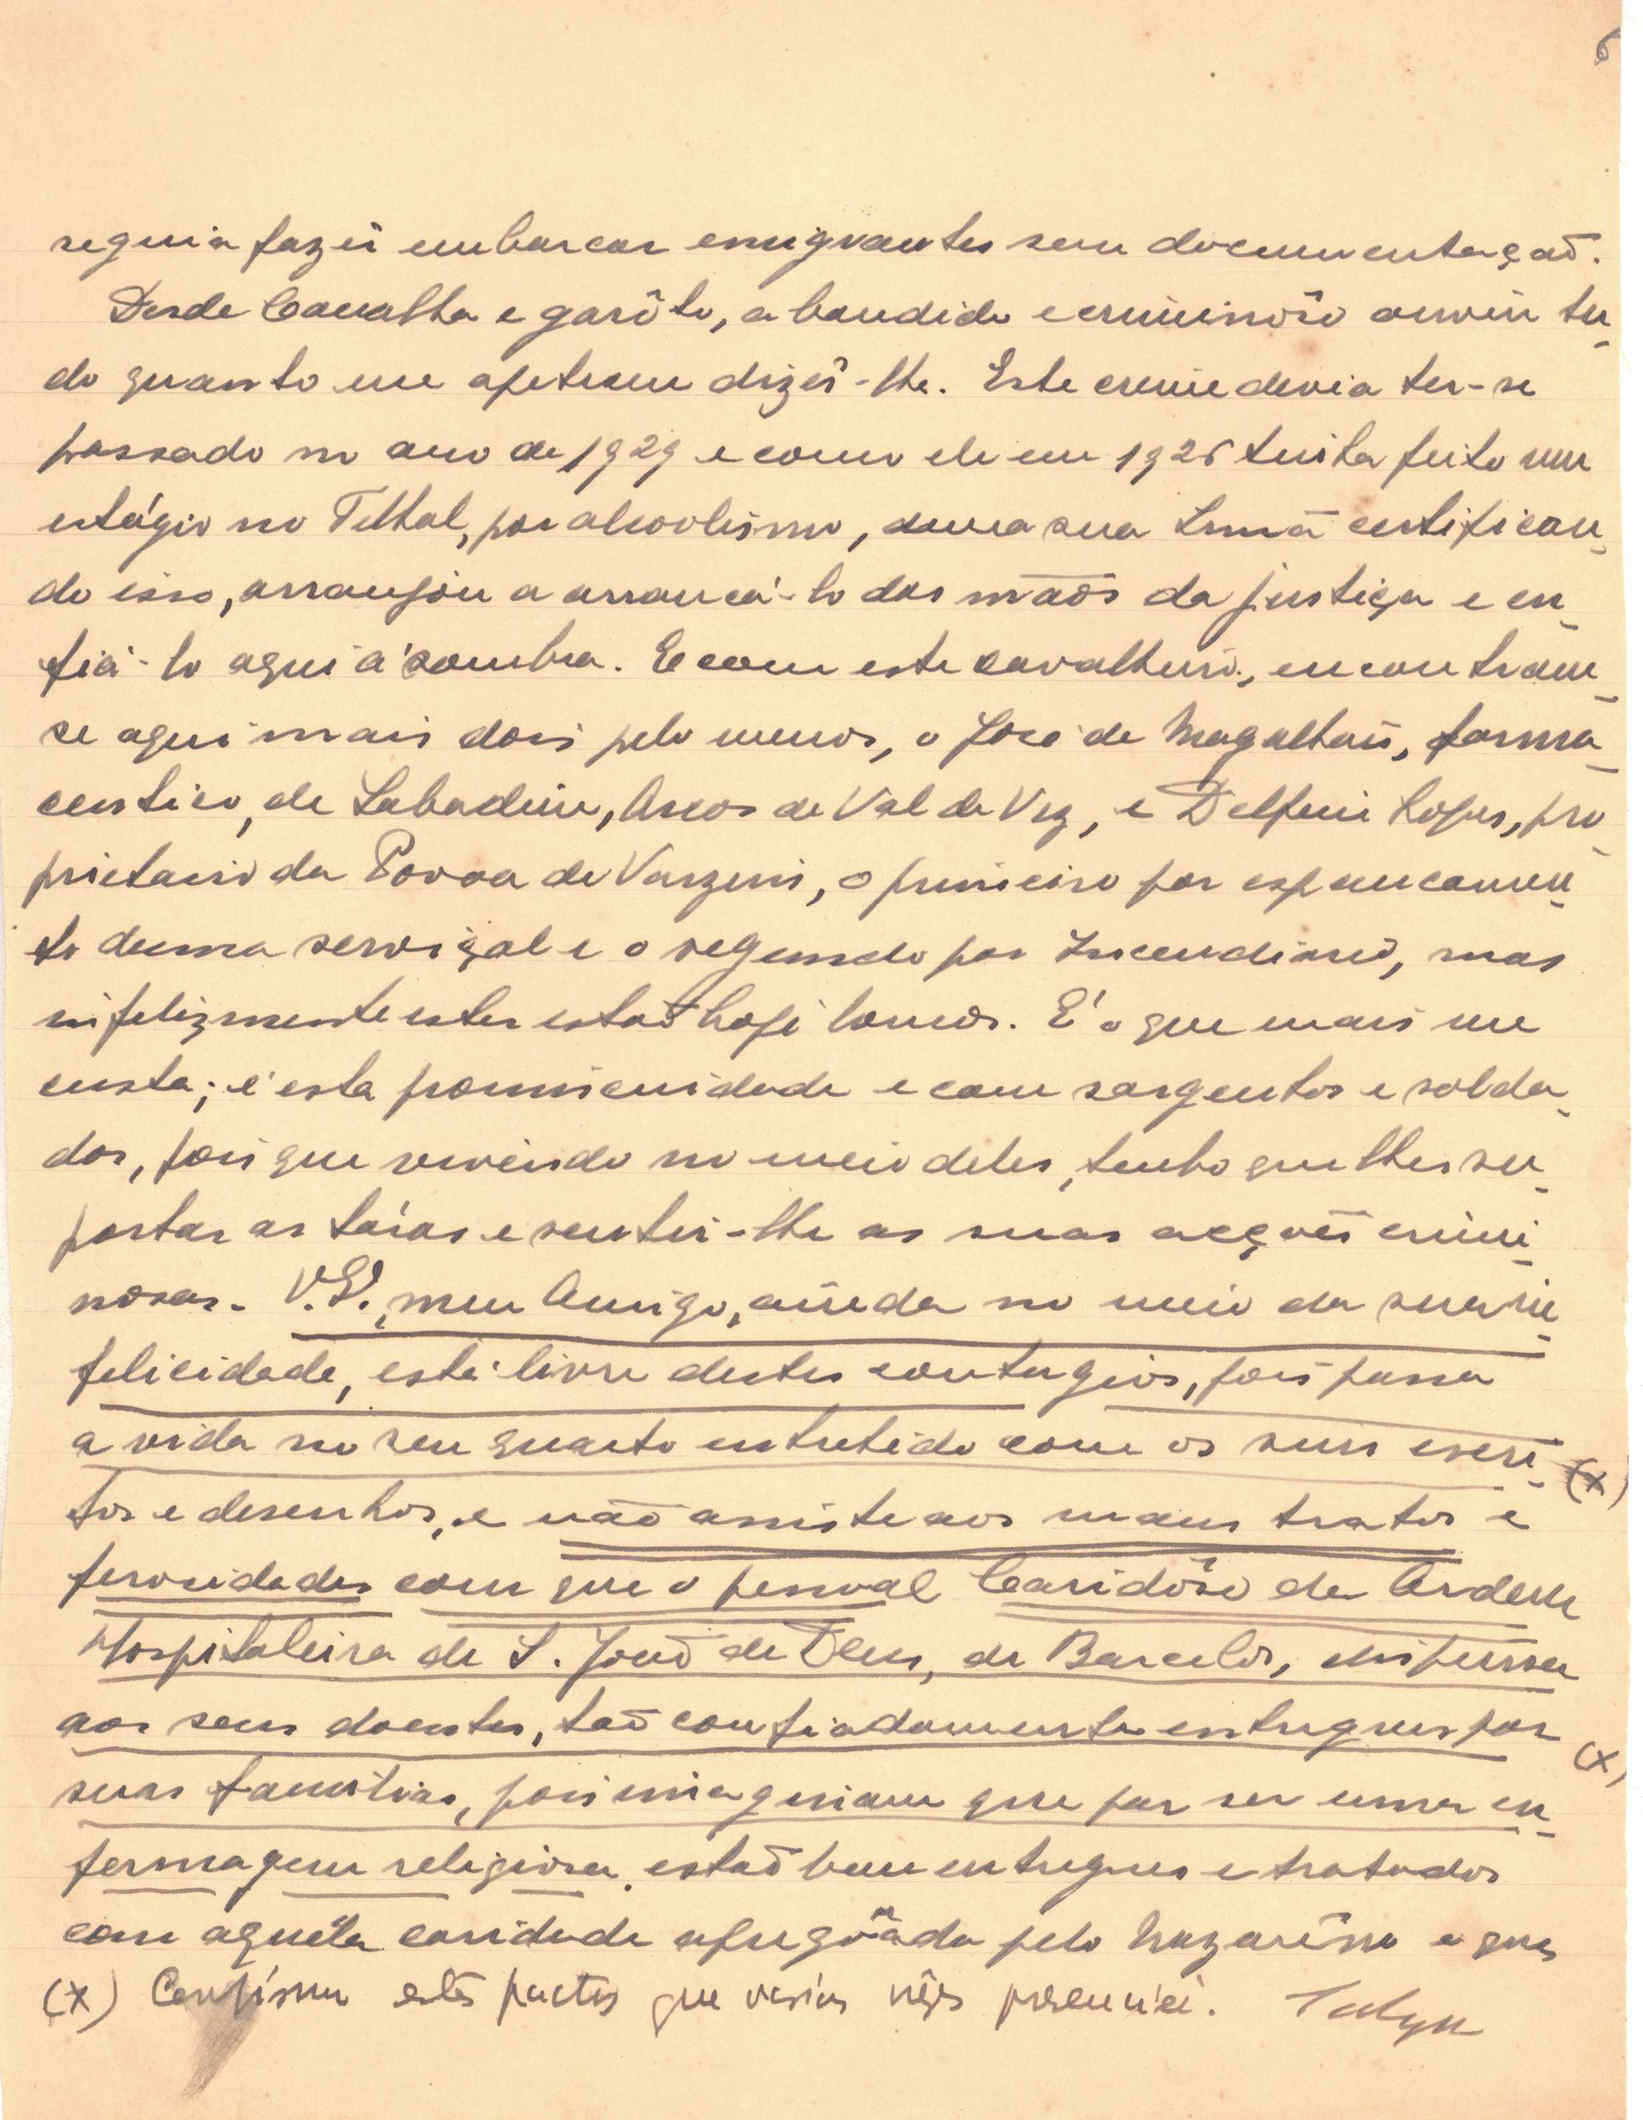 6
seguia fazêr embarcar emigrantes sem documentaçaõ.
Desde Canalha e garôto, a bandido e criminôso ouviu tu-
do quanto me apeteceu dizêr-lhe. Este crime devia ter-se
passado no ano de 1929 e como ele em 1926 tinha feito um
estágio no Telhal, por alcoolismo, sua Irmã certifican-
do isso, arranjou a arrancá-lo das maõs da justiça e en-
fiá-lo aqui á sombra. E com este cavalheiro, encontram-
se aqui mais dois pelo menos, o José de Magalhaẽs, farma-
ceutico, de Sabadim, Arcos de Val de Vez, e Delfim Lopes, pro-
prietario da Povoa de Varzim, o primeiro por espancamen-
to duma serviçal e o segundo por Incendiario, mas
infelizmente estes estaõ hoje loucos. É o que mais me
custa; é esta promiscuidade e com sargentos e solda-
dos, pois que vivendo no meio deles, tenho que lhes su-
portar as táras e sentir-lhe as suas acçoẽs crimi-
nosas. V. E., meu Amigo, ainda no meio da sua in-
felicidade, está livre destes contagios, pois passa
a vida no seu quarto entretido com os seus escri- (x)
tos e desenhos, e naõ assiste aos maus tratos e
ferocidades com que o pessoal Caridôso da Ordem
Hospitaleira de S. Joaõ de Deus, de Barcelos, dispensa
aos seus doentes, taõ confiadamente entregues por (x)
suas familias, pois imaginam que por ser uma en-
fermagem religiosa, estaõ bem entregues e tratados
com aquéla caridade apregoada pelo Nazarêno e que
(x) Confirmo estes factos que varias vêzes presenciei.